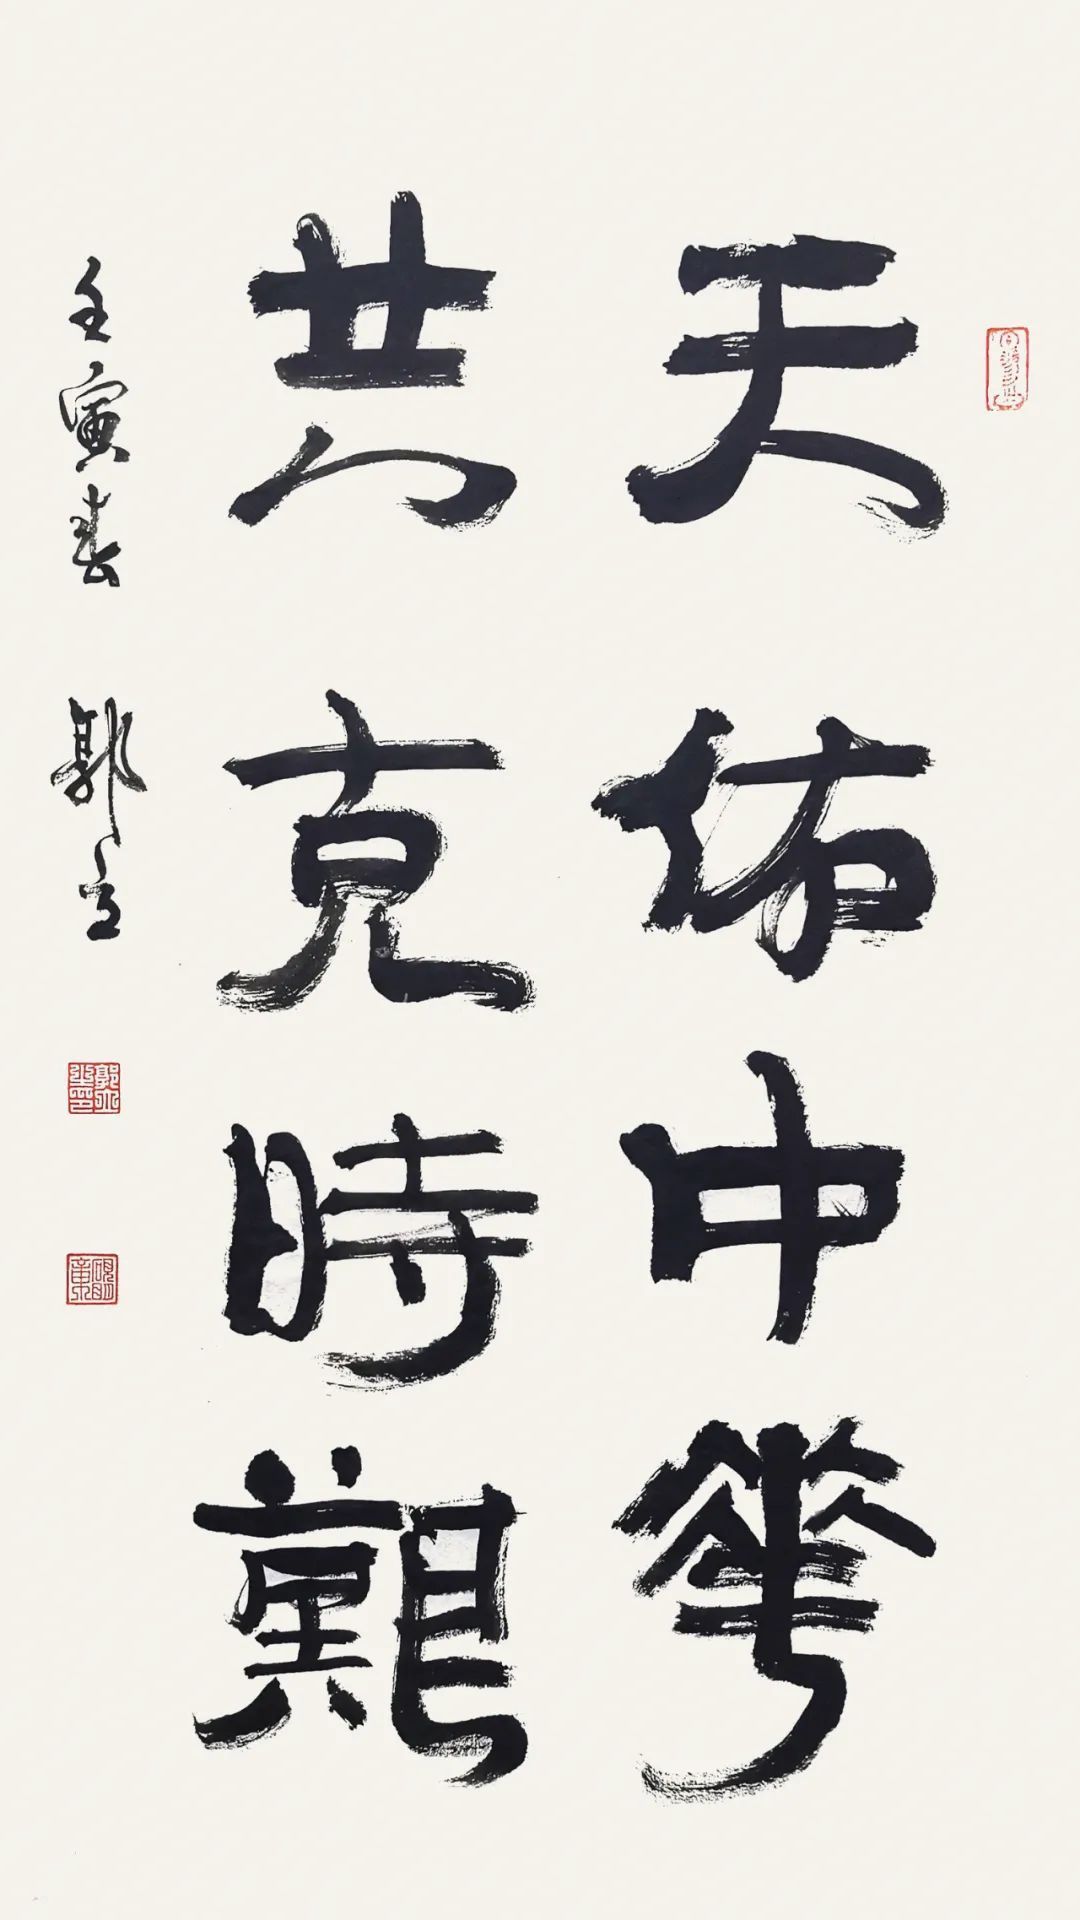 天佑中華
共克時艱
壬寅春 郭立